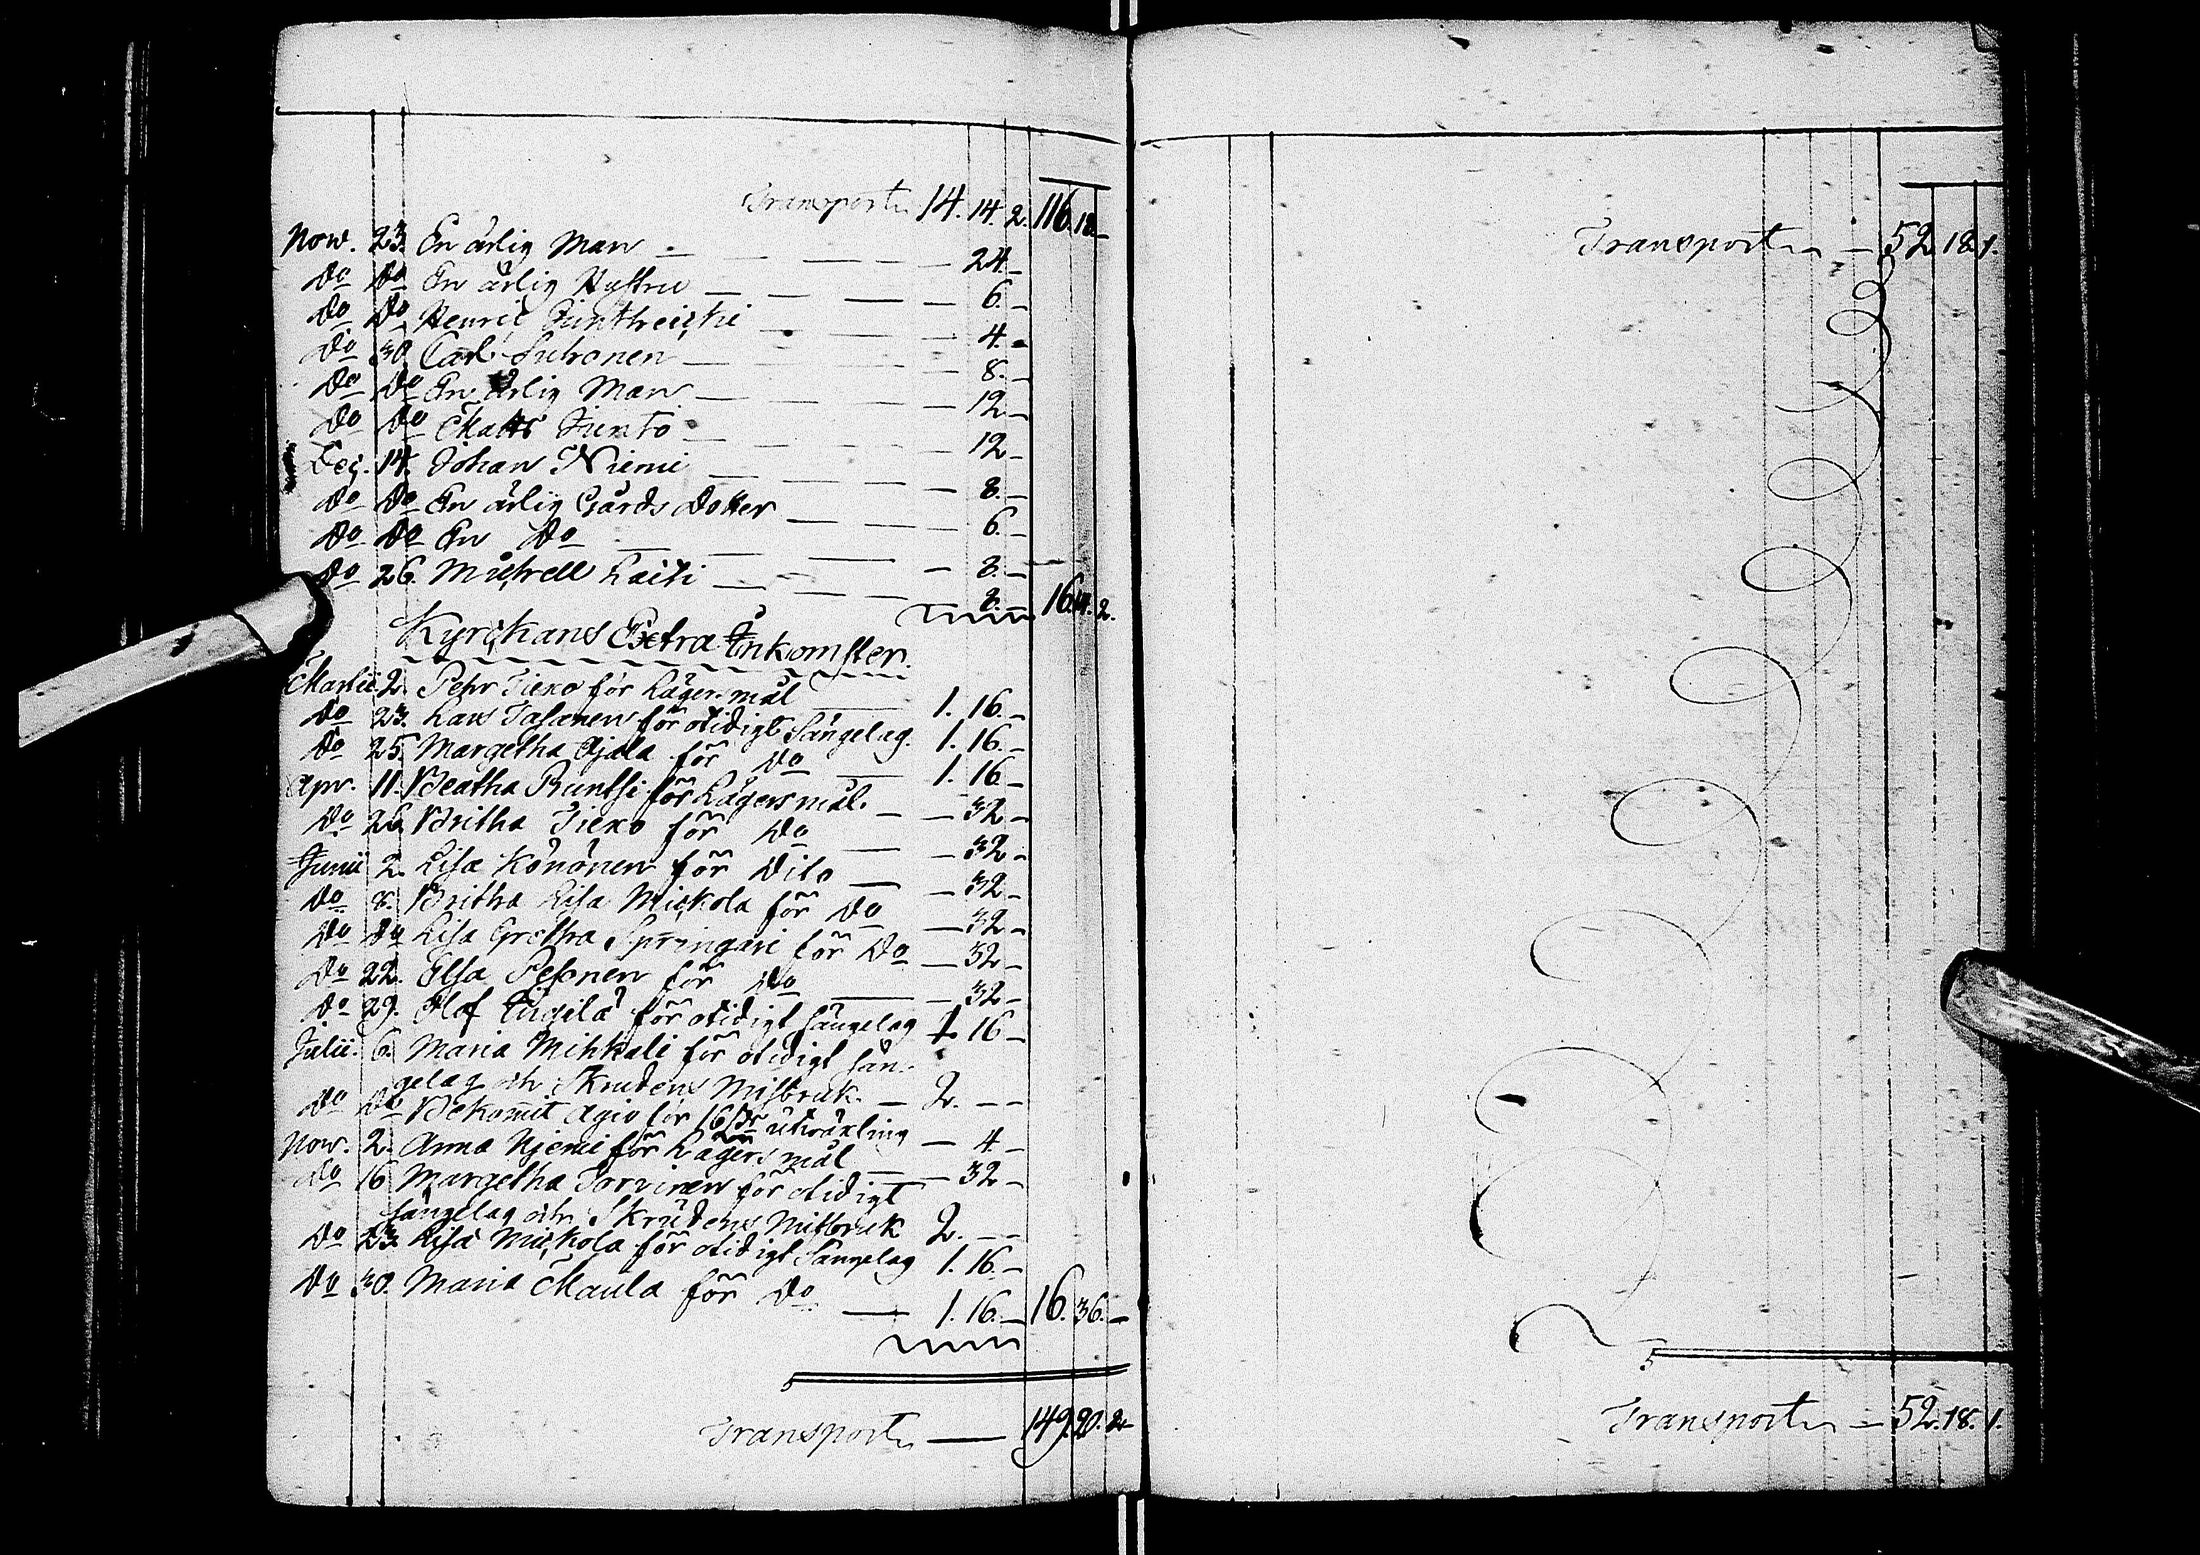 Transport 14. 14. 2. 116. 18.-
Nov. 23. En ärlig Man — 24.-
Do Do En ärlig Hustru — 6.-
Do Do Henric — 4.-
Do 30. Carl Suhonen — 8.-
Do Do En ärlig Man — 12.-
Do Do Matts — 12.-
Dec. 14. Johan Niemi — 8.-
Do Do En ärlig Gårds Dotter — 6.-
Do Do En Do — 8.-
Do 26. Michell Laiti — 8.- 16. 14. 2.
Kyrckans Extra Inkomster.
Martii 2. Pehr Tiexo för Lägersmål — 1. 16.-
Do 23. Lars för otidigt Sängelag. 1. 16.-
Do 25. Margetha Ajala för Do — 1. 16.-
Apr. 11. Beatha för Lägersmål. — 32.-
Do 26. Britha Tiexo för Do — 32.-
Junii 2. Lisa Könönen för Dito — 32.-
Do 8. Britha Lisa Mickola för Do — 32.-
Do Do Lisa Gretha Springari för Do — 32.-
Do 22. Elsa Pesonen för Do — 32.-
Do 29. Olof för otidigt sängelag 1. 16.-
Julii. 6. Maria Mihkali för otidigt sän-
gelag och Skrudens Misbruk. — 2. — —
Do Do Bekommit Agio för 16 utväxling — 4.-
Nov. 2. Anna Njemi för Lägersmål — 32.-
Do 16 Margetha Torvinen för otidigt
sängelag och Skrudens Misbruk 2. — —
Do 23. Lisa Mickola för otidigt Sängelag 1. 16.-
Do 30. Maria Maula för Do — 1. 16.- 16. 36.-
Transport — 149. 20. 2.
Transport — 52. 18. 1.
Transport — 52. 18. 1.